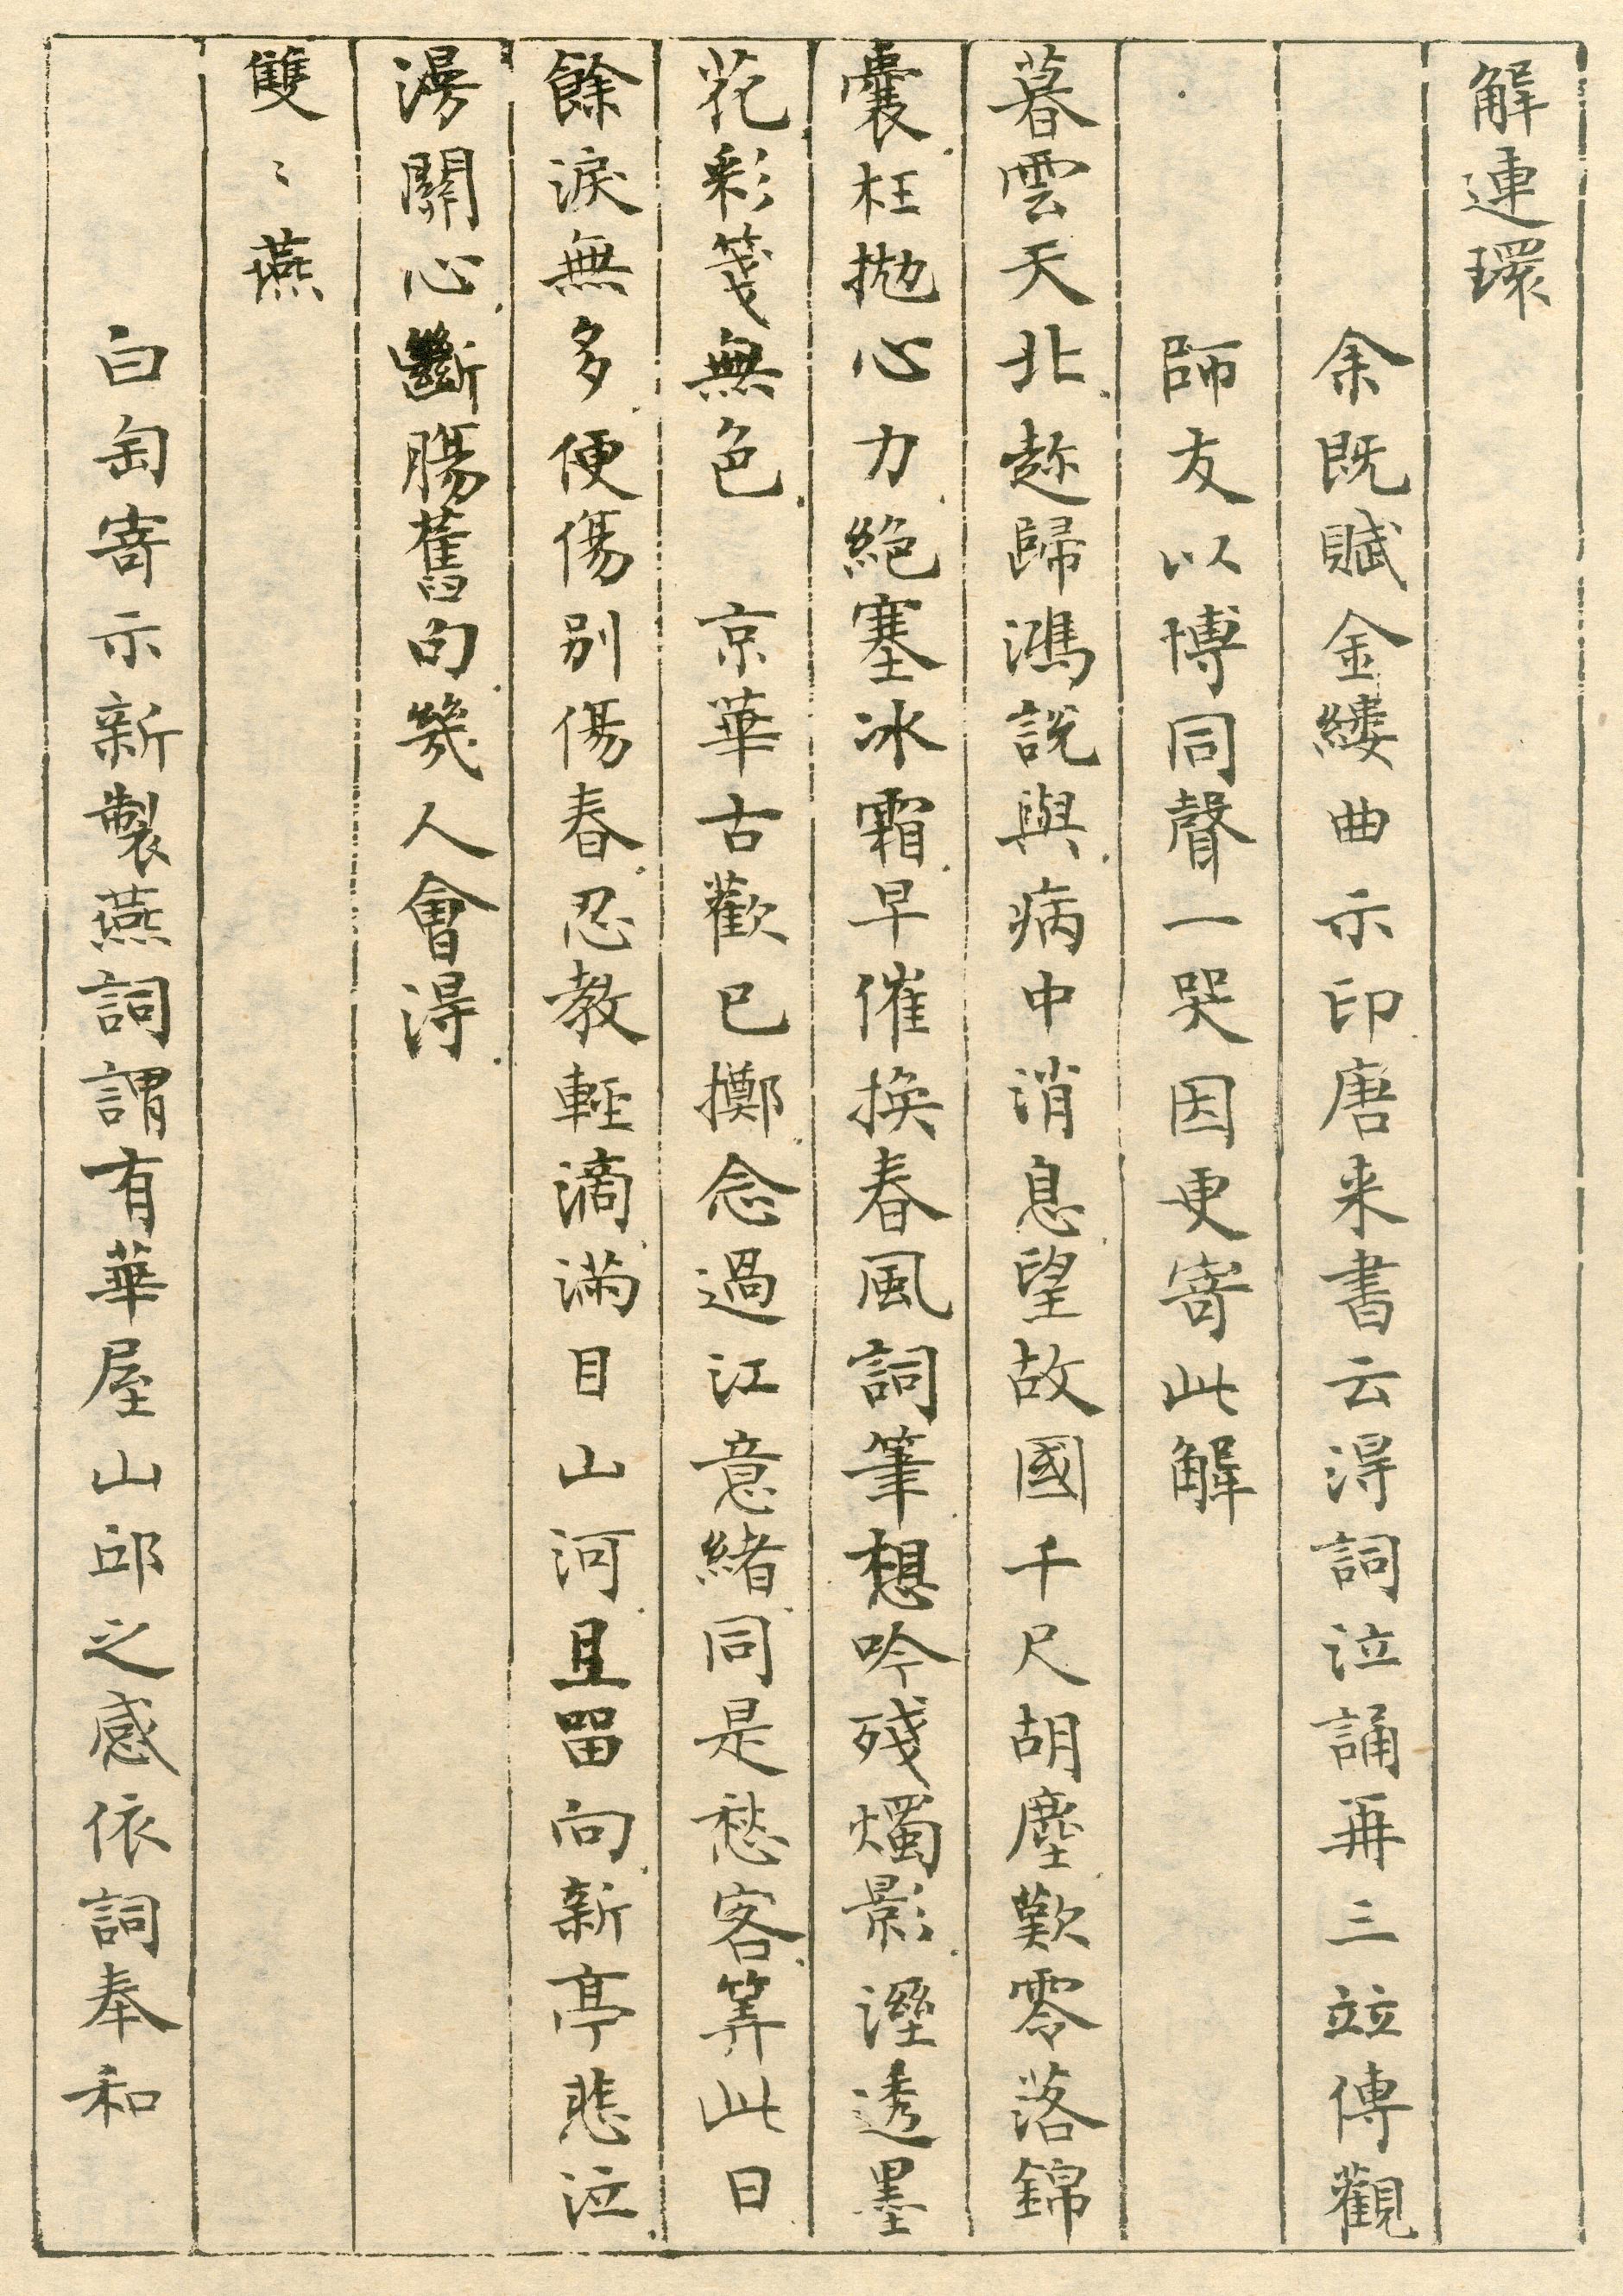 解連環
余既賦金縷曲示印唐来書云得詞泣誦再三竝傳觀
師友以博同聲一哭因更寄此解
暮雲天北趂歸鴻說與病中消息望故國千尺胡塵歎零落錦
囊枉拋心力絕塞冰霜早催換春風詞筆想吟殘燭影溼透墨
花彩箋無色　京華古歡已擲念過江意緒同是愁客算此日
餘淚無多便傷別傷春忍教輕滴滿目山河且留向新亭悲泣
漫關心斷腸舊句幾人會得
雙〻燕
白匋寄示新製燕詞謂有華屋山邱之感依詞奉和